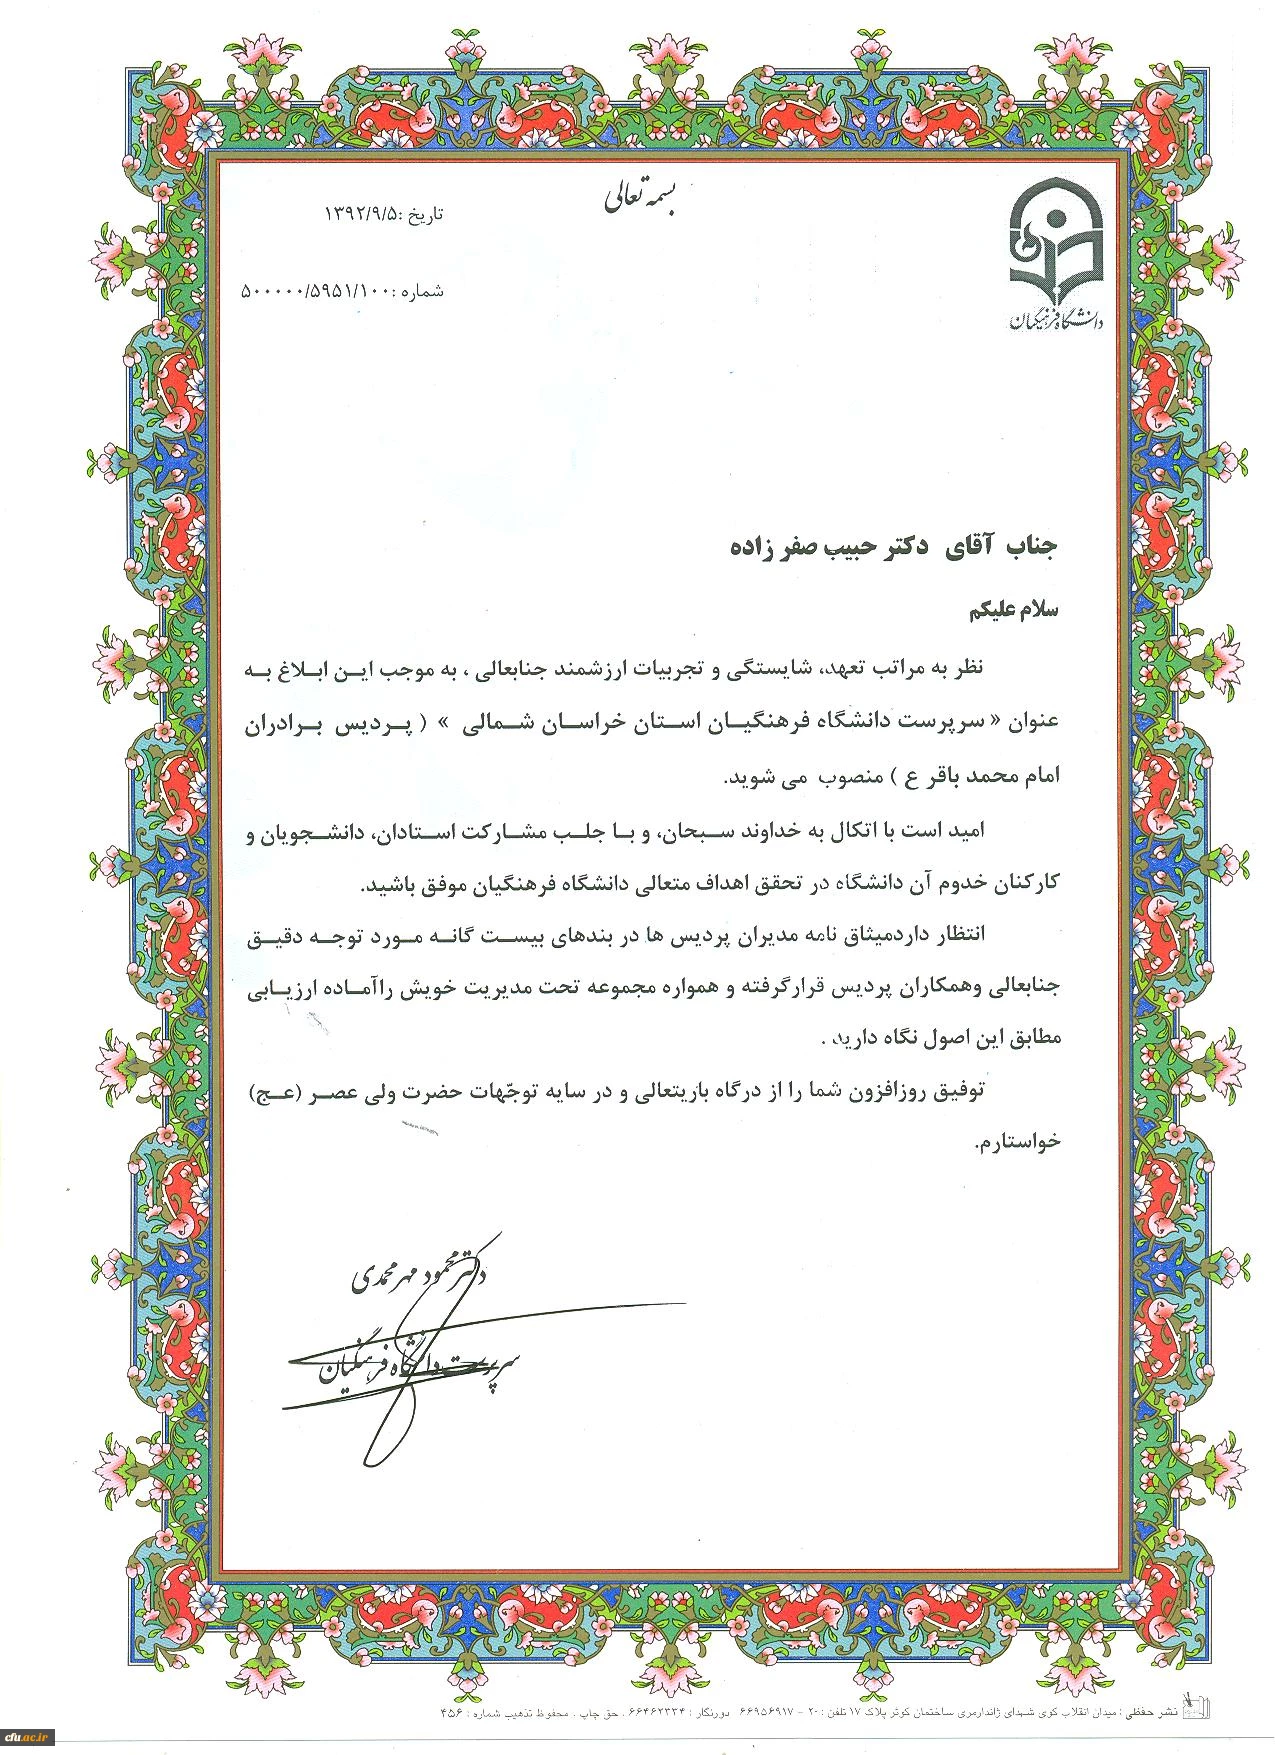 بسمه تعالی
تاریخ :۱۳۹۲/۹/۵
شماره :۵۰۰۰۰۰/۵۹۵۱/۱۰۰
دانشگاه فرهنگیان
جناب آقای دکتر حبیب صفر زاده
سلام علیکم
نظر به مراتب تعهد، شایستگی و تجربیات ارزشمند جنابعالی ، به موجب ایـن ابـلاغ بـه
عنوان « سرپرست دانشگاه فرهنگیـان اسـتان خراسـان شـمالی » ( پـردیس بـرادران
امام محمد باقر ع ) منصوب می شوید.
امید است با اتکال به خداوند سـبحان، و بـا جلـب مشـارکت اسـتادان، دانشـجویان و
کارکنان خدوم آن دانشگاه در تحقق اهداف متعالی دانشگاه فرهنگیان موفق باشید.
انتظار داردمیثاق نامه مدیران پردیس ها در بندهای بیسـت گانـه مـورد توجـه دقیـق
جنابعالی وهمکاران پردیس قرارگرفته و همواره مجموعه تحت مدیریت خویش راآمـاده ارزیـابی
مطابق این اصول نگاه دارید .
توفیق روزافزون شما را از درگاه باریتعالی و در سایه توجّهات حضرت ولی عصـر (عـج)
خواستارم.
دکتر محمود مهرمحمدی
سرپرست دانشگاه فرهنگیان
نشر حفظی : میدان انقلاب کوی شهدای ژاندارمری ساختمان کوثر پلاک ۱۷ تلفن : ۲۰ - ۶۶۹۵۶۹۱۷ دورنگار : ۶۶۴۶۲۳۳۴ . حق چاپ . محفوظ تذهیب شماره : ۴۵۶
cfu.ac.ir